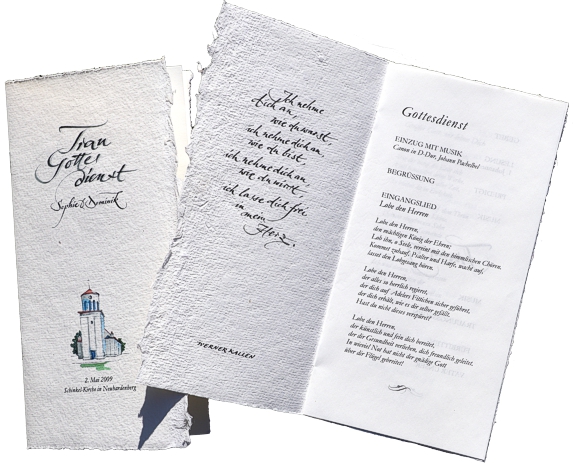 Trau
Gottes
dienst
Sophie & Dominik
2. Mai 2009
Schinkel-Kirche in Neuhardenberg
Ich nehme
dich an,
wie du warst,
ich nehme dich an,
wie du bist,
ich nehme dich an,
wie du wirst,
ich lasse dich frei
in
mein
Herz.
WERNER KALLEN
Gottesdienst
EINZUG MIT MUSIK
Canon in D-Dur, Johann Pachelbel
BEGRÜSSUNG
EINGANGSLIED
Lobe den Herren
Lobe den Herren,
den mächtigen König der Ehren;
Lob ihn, o Seele, vereint mit den himmlischen Chören.
Kommet zuhauf, Psalter und Harfe, wacht auf,
lasset den Lobgesang hören.
Lobe den Herren,
der alles so herrlich regieret,
der dich auf Adelers Fittichen sicher geführet,
der dich erhält, wie es dir selber gefällt.
Hast du nicht dieses verspüret?
Lobe den Herren,
der künstlich und fein dich bereitet,
der dir Gesundheit verliehen, dich freundlich geleitet.
In wieviel Not hat nicht der gnädige Gott
über dir Flügel gebreitet!